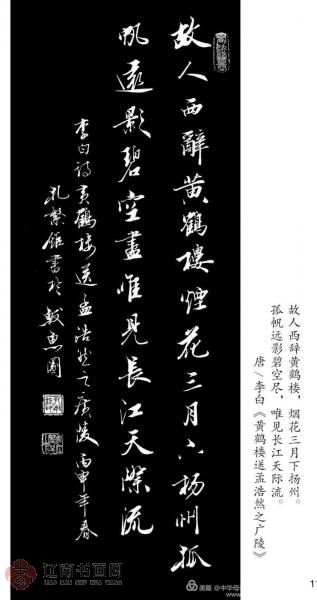 故人西辭黃鶴樓煙花三月下揚州孤
帆遠影碧空盡唯見長江天際流
李白詩黃鶴樓送孟浩然之廣陵丙申年春
孔繁錦書於
故人西辞黄鹤楼，烟花三月下扬州。
孤帆远影碧空尽，唯见长江天际流。
唐\李白《黄鹤楼送孟浩然之广陵》
江南书画网
美篇 @中华母
11